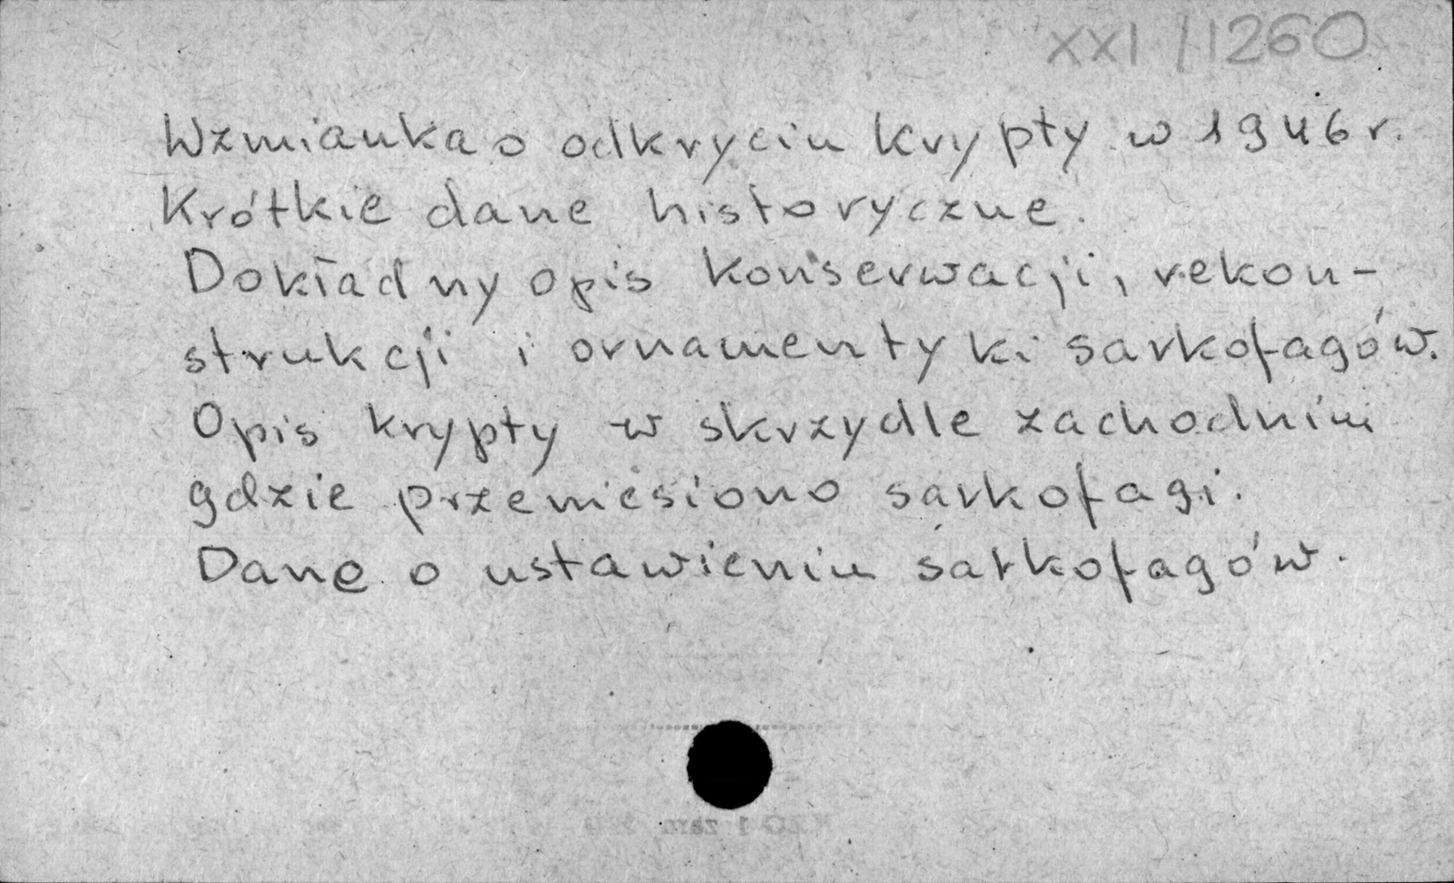 XXI / 1260
Wzmianka o odkryciu krypty w 1946 r.
Krótkie dane historyczne.
Dokładny opis konserwacji, rekon-
strukcji i ornamentyki sarkofagów.
Opis krypty w skrzydle zachodnim
gdzie przeniesiono sarkofagi.
Dane o ustawieniu sarkofagów.